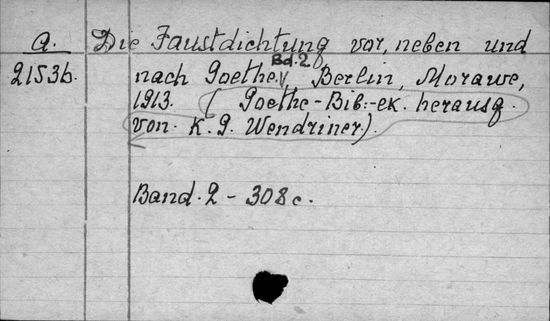 A. Die Faustdichtung vor, neben und
Bd. 2
2153b. nach Goethe, Berlin, Morawe,
1913. (Goethe-Bib:-ek. herausg.
von K. G. Wendriner).
Band. 2 - 308 c.